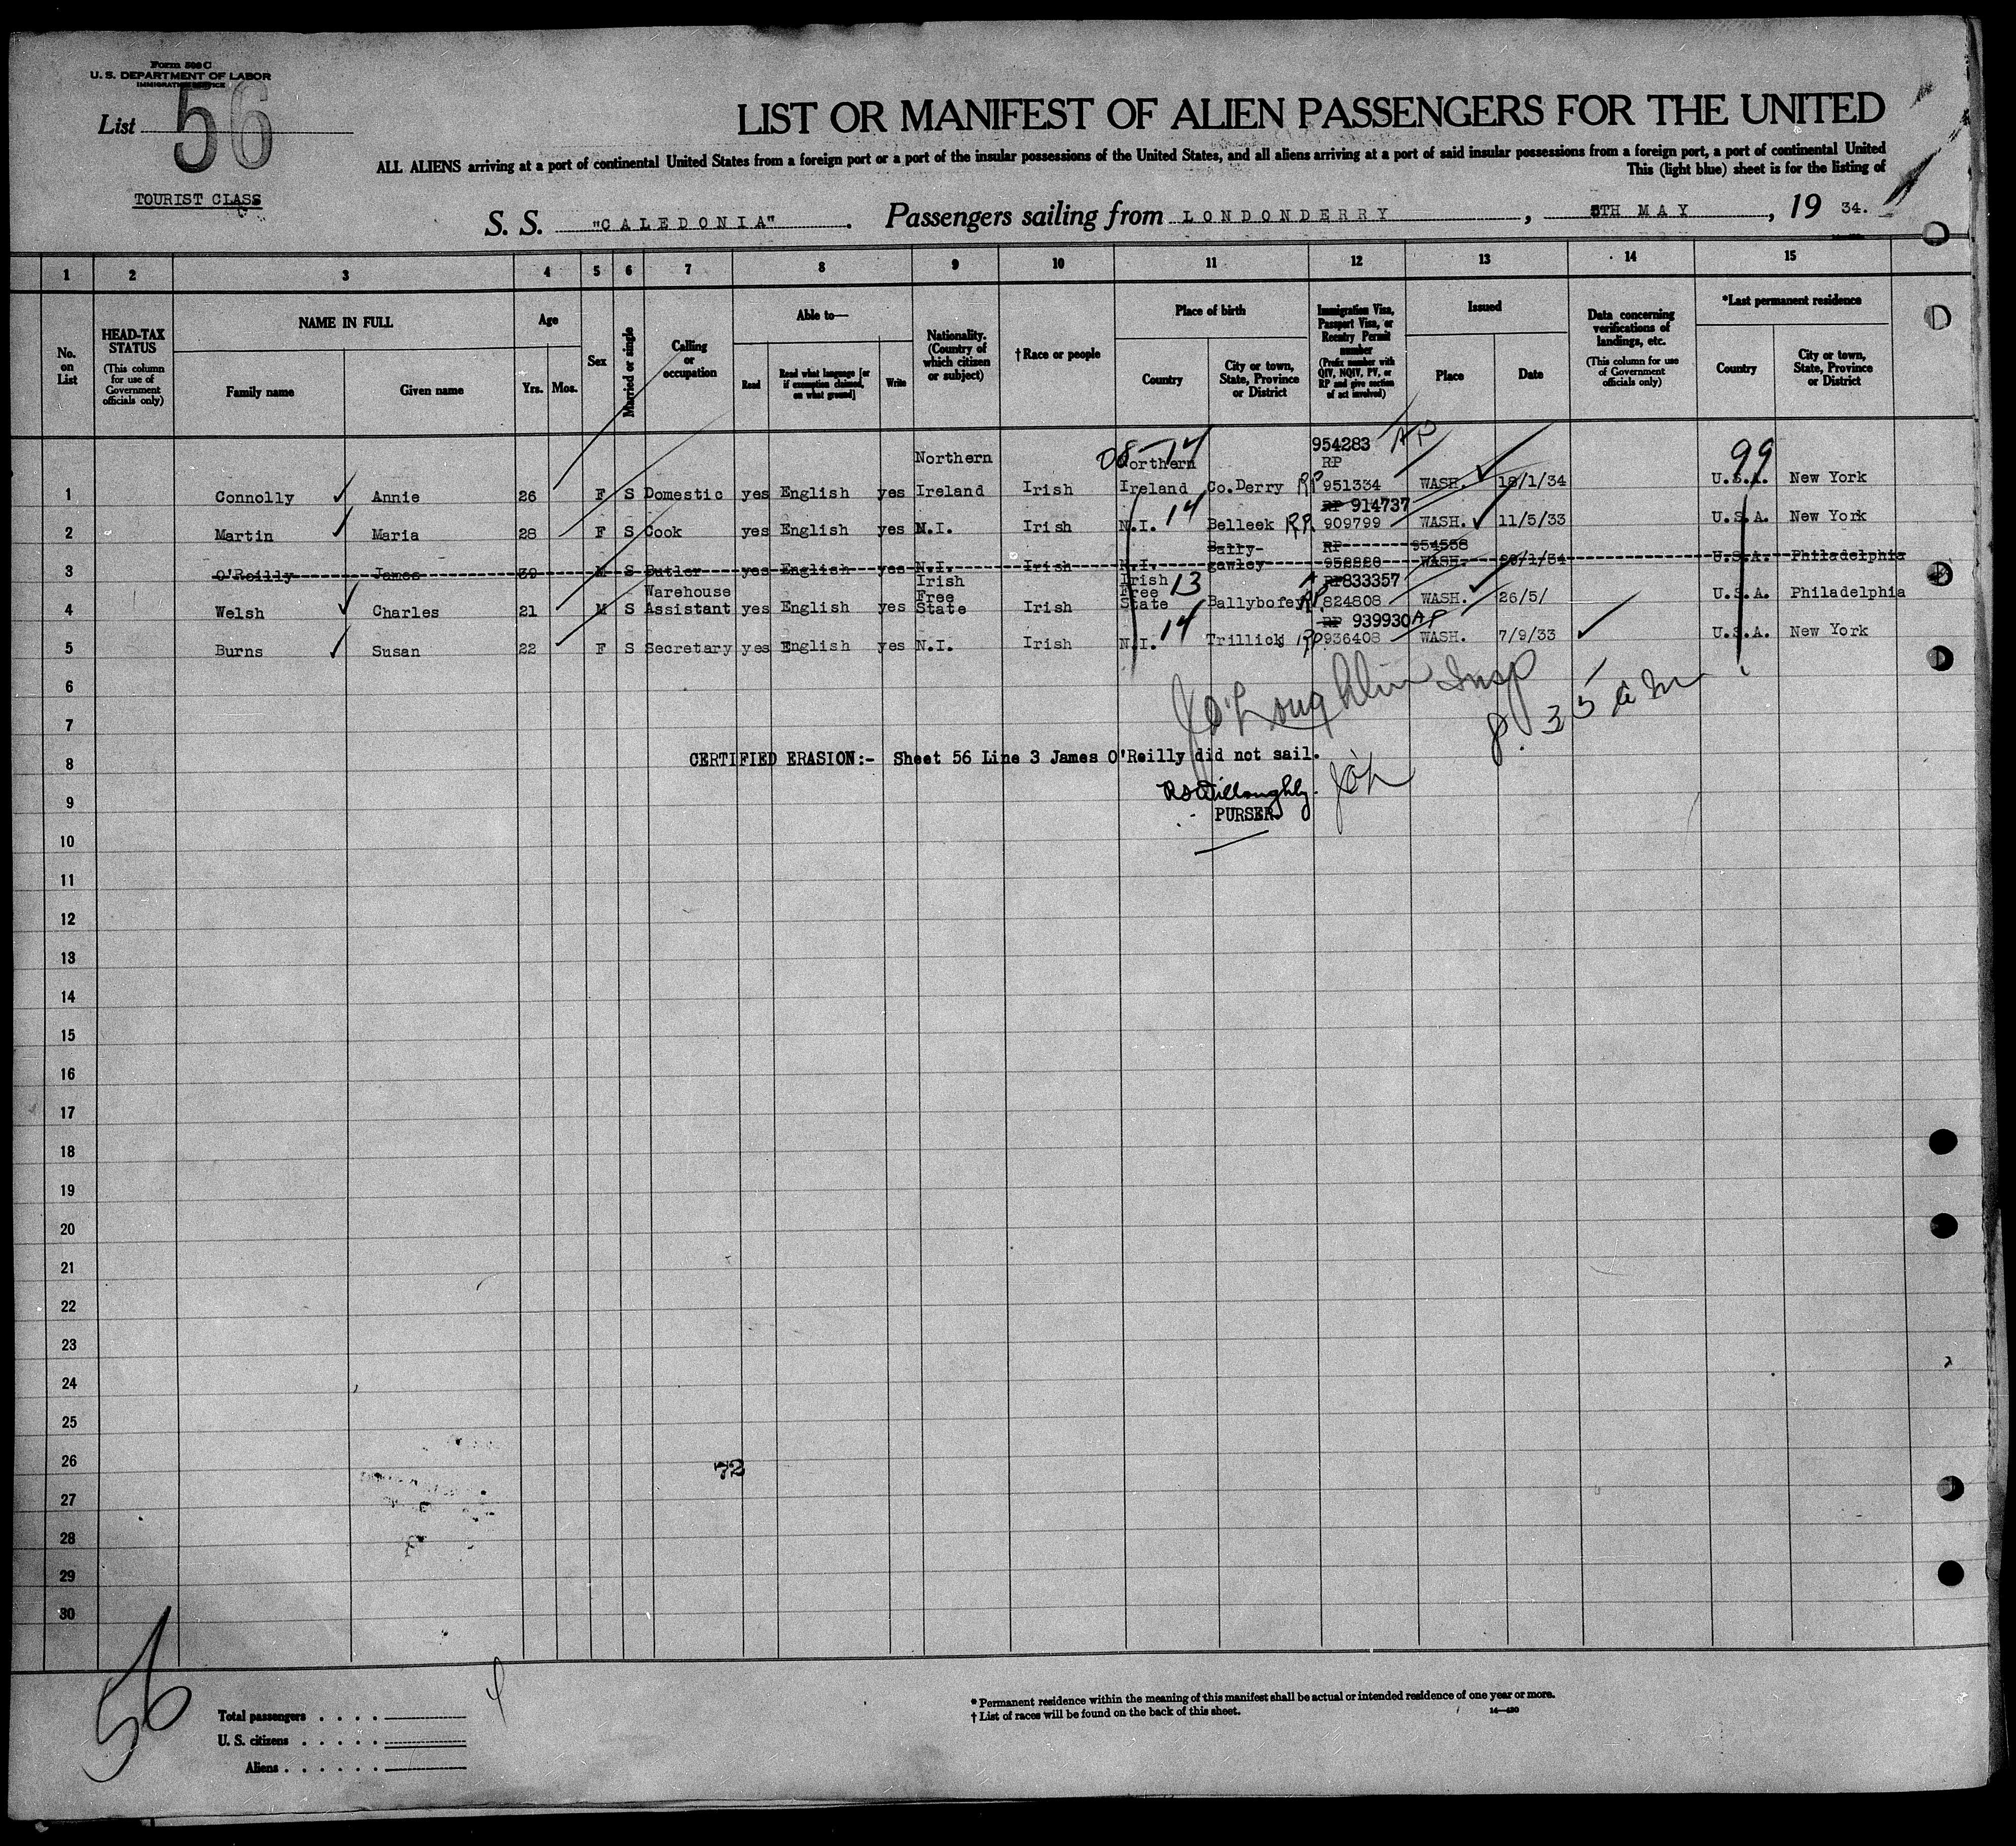 Form 500 C
U. S. DEPARTMENT OF LABOR
IMMIGRATION SERVICE
List 56
TOURIST CLASS
LIST OR MANIFEST OF ALIEN PASSENGERS FOR THE UNITED
ALL ALIENS arriving at a port of continental United States from a foreign port or a port of the insular possessions of the United States, and all aliens arriving at a port of said insular possessions from a foreign port, a port of continental United
This (light blue) sheet is for the listing of
S. S. "CALEDONIA". Passengers sailing from LONDONDERRY, 5TH MAY, 19 34.
1 2 3 4 5 6 7 8 9 10 11 12 13 14 15
No. on List
HEAD-TAX STATUS (This column for use of Government officials only)
NAME IN FULL
Family name Given name
Age
Yrs. Mos.
Sex
Married or single
Calling or occupation
Able to—
Read Read what language [or if exemption claimed, on what ground] Write
Nationality. (Country of which citizen or subject)
† Race or people
Place of birth
Country City or town, State, Province or District
Immigration Visa, Passport Visa, or Reentry Permit number (Prefix number with QIV, NQIV, PV, or RP and give section of act involved)
Issued
Place Date
Data concerning verifications of landings, etc. (This column for use of Government officials only)
*Last permanent residence
Country City or town, State, Province or District
08-14 954283 AP 99
Northern Northern RP
1 Connolly Annie 26 F S Domestic yes English yes Ireland Irish Ireland Co.Derry RP 951334 WASH. 18/1/34 U.S.A. New York
14 RP 914737
2 Martin Maria 28 F S Cook yes English yes N.I. Irish N.I. Belleek RP 909799 WASH. 11/5/33 U.S.A. New York
Bally- RP 954558
3 O'Reilly James 39 M S Butler yes English yes N.I. Irish N.I. gawley WASH. U.S.A. Philadelphia
Warehouse Irish Free Irish Free 13 RP 833357
4 Welsh Charles 21 M S Assistant yes English yes State Irish State Ballybofey RP 824808 WASH. 26/5/ U.S.A. Philadelphia
14 RP 939930 AP
5 Burns Susan 22 F S Secretary yes English yes N.I. Irish N.I. Trillick RP 936408 WASH. 7/9/33 U.S.A. New York
6
J O'Loughlin Insp
8.35 a m
7
8 CERTIFIED ERASION:- Sheet 56 Line 3 James O'Reilly did not sail.
9 Willoughby. JOL
PURSER.
10
11
12
13
14
15
16
17
18
19
20
21
22
23
24
25
26 72
27
28
29
30
56
Total passengers . . . .
U. S. citizens . . . . .
Aliens . . . . . .
* Permanent residence within the meaning of this manifest shall be actual or intended residence of one year or more.
† List of races will be found on the back of this sheet.
14—430